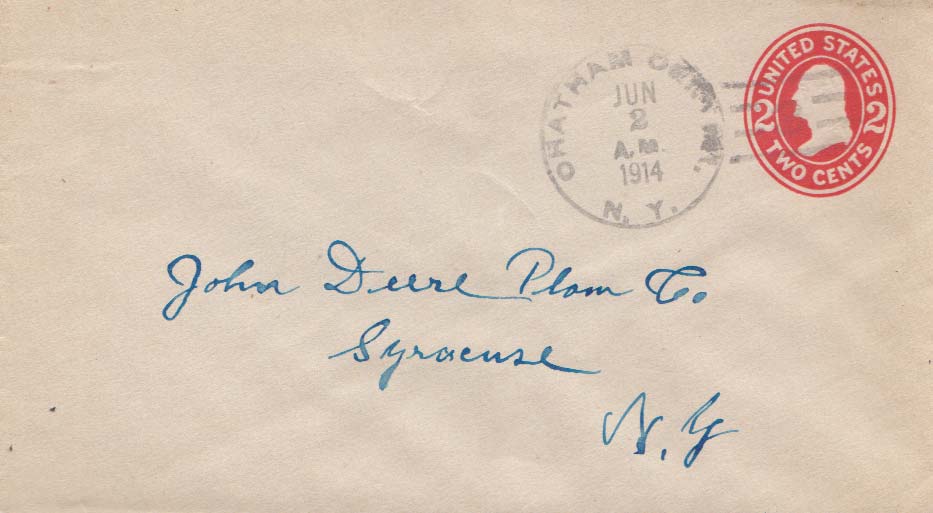 UNITED STATES
2 2
TWO CENTS
CHATHAM CENTER
JUN
2
A.M.
1914
N. Y.
John Deere Plow Co.
Syracuse
N. Y